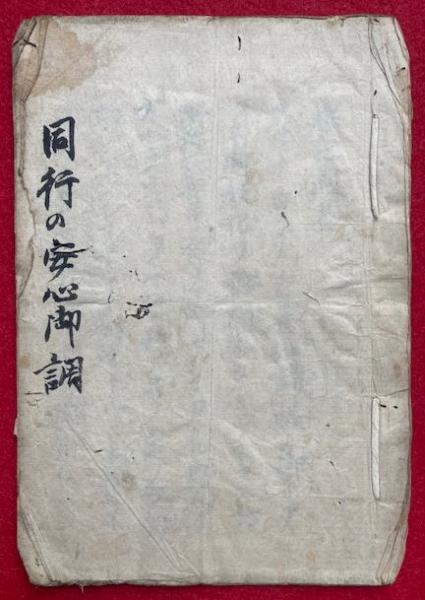 同行の安心御調